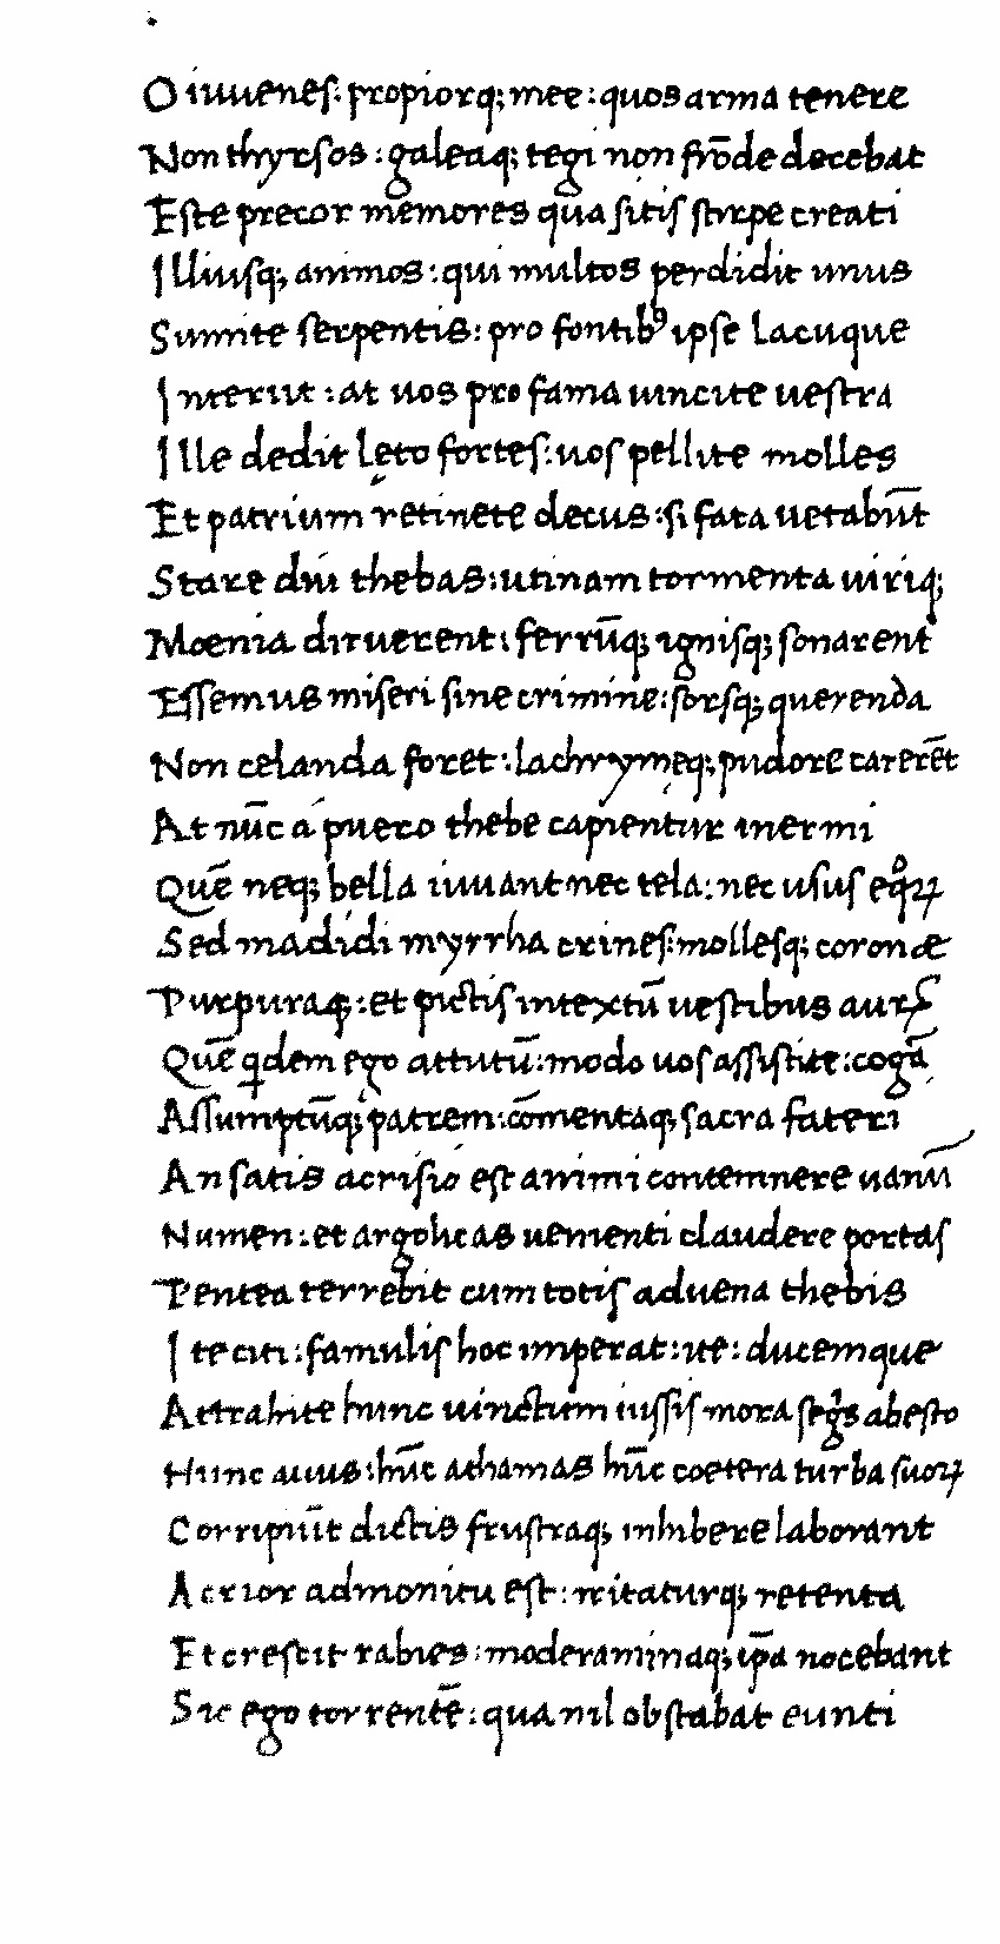 O iuuenes: propiorq; mee: quos arma tenere
Non thyrsos: galeaq; tegi non frōde decebat
Este precor memores qua sitis stirpe creati
Illiusq; animos: qui multos perdidit unus
Sumite serpentis: pro fontibꝰ ipse lacuque
Interiit: at uos pro fama uincite uestra
Ille dedit lęto fortes: uos pellite molles
Et patrium retinete decus: si fata uetabūt
Stare diu thebas: utinam tormenta uiriq;
Moenia diruerent: ferrūq; ignisq; sonarent
Essemus miseri sine crimine: sorsq; querenda
Non celanda foret: lachrymęq; pudore carerēt
At nūc á puero thebe capientur inermi
Quē neq; bella iuuant nec tela: nec usus eqͦꝝ
Sed madidi myrrha crines: mollesq; coronæ
Purpuraq; et pictis intextū uestibus aurū
Quē qͥdem ego actutū: modo uos assistite: cogā
Assumptūq; patrem: cōmentaq; sacra fateri
An satis acrisio est animi contemnere uanū
Numen: et argolicas uementi claudere portas
Pentea terrebit cum totis aduena thebis
Ite citi: famulis hoc imperat: ite: ducemque
Attrahite hunc uinctum iussis mora segͥs abesto
Hunc auus: hūc athamas hūc coetera turba suoꝝ
Corripiūt dictis frustraq; inhibere laborant
Acrior admonitu est: irritaturq; retenta
Et crescit rabies: moderaminaq; ip̄a nocebant
Sic ego torrentē: qua nil obstabat eunti